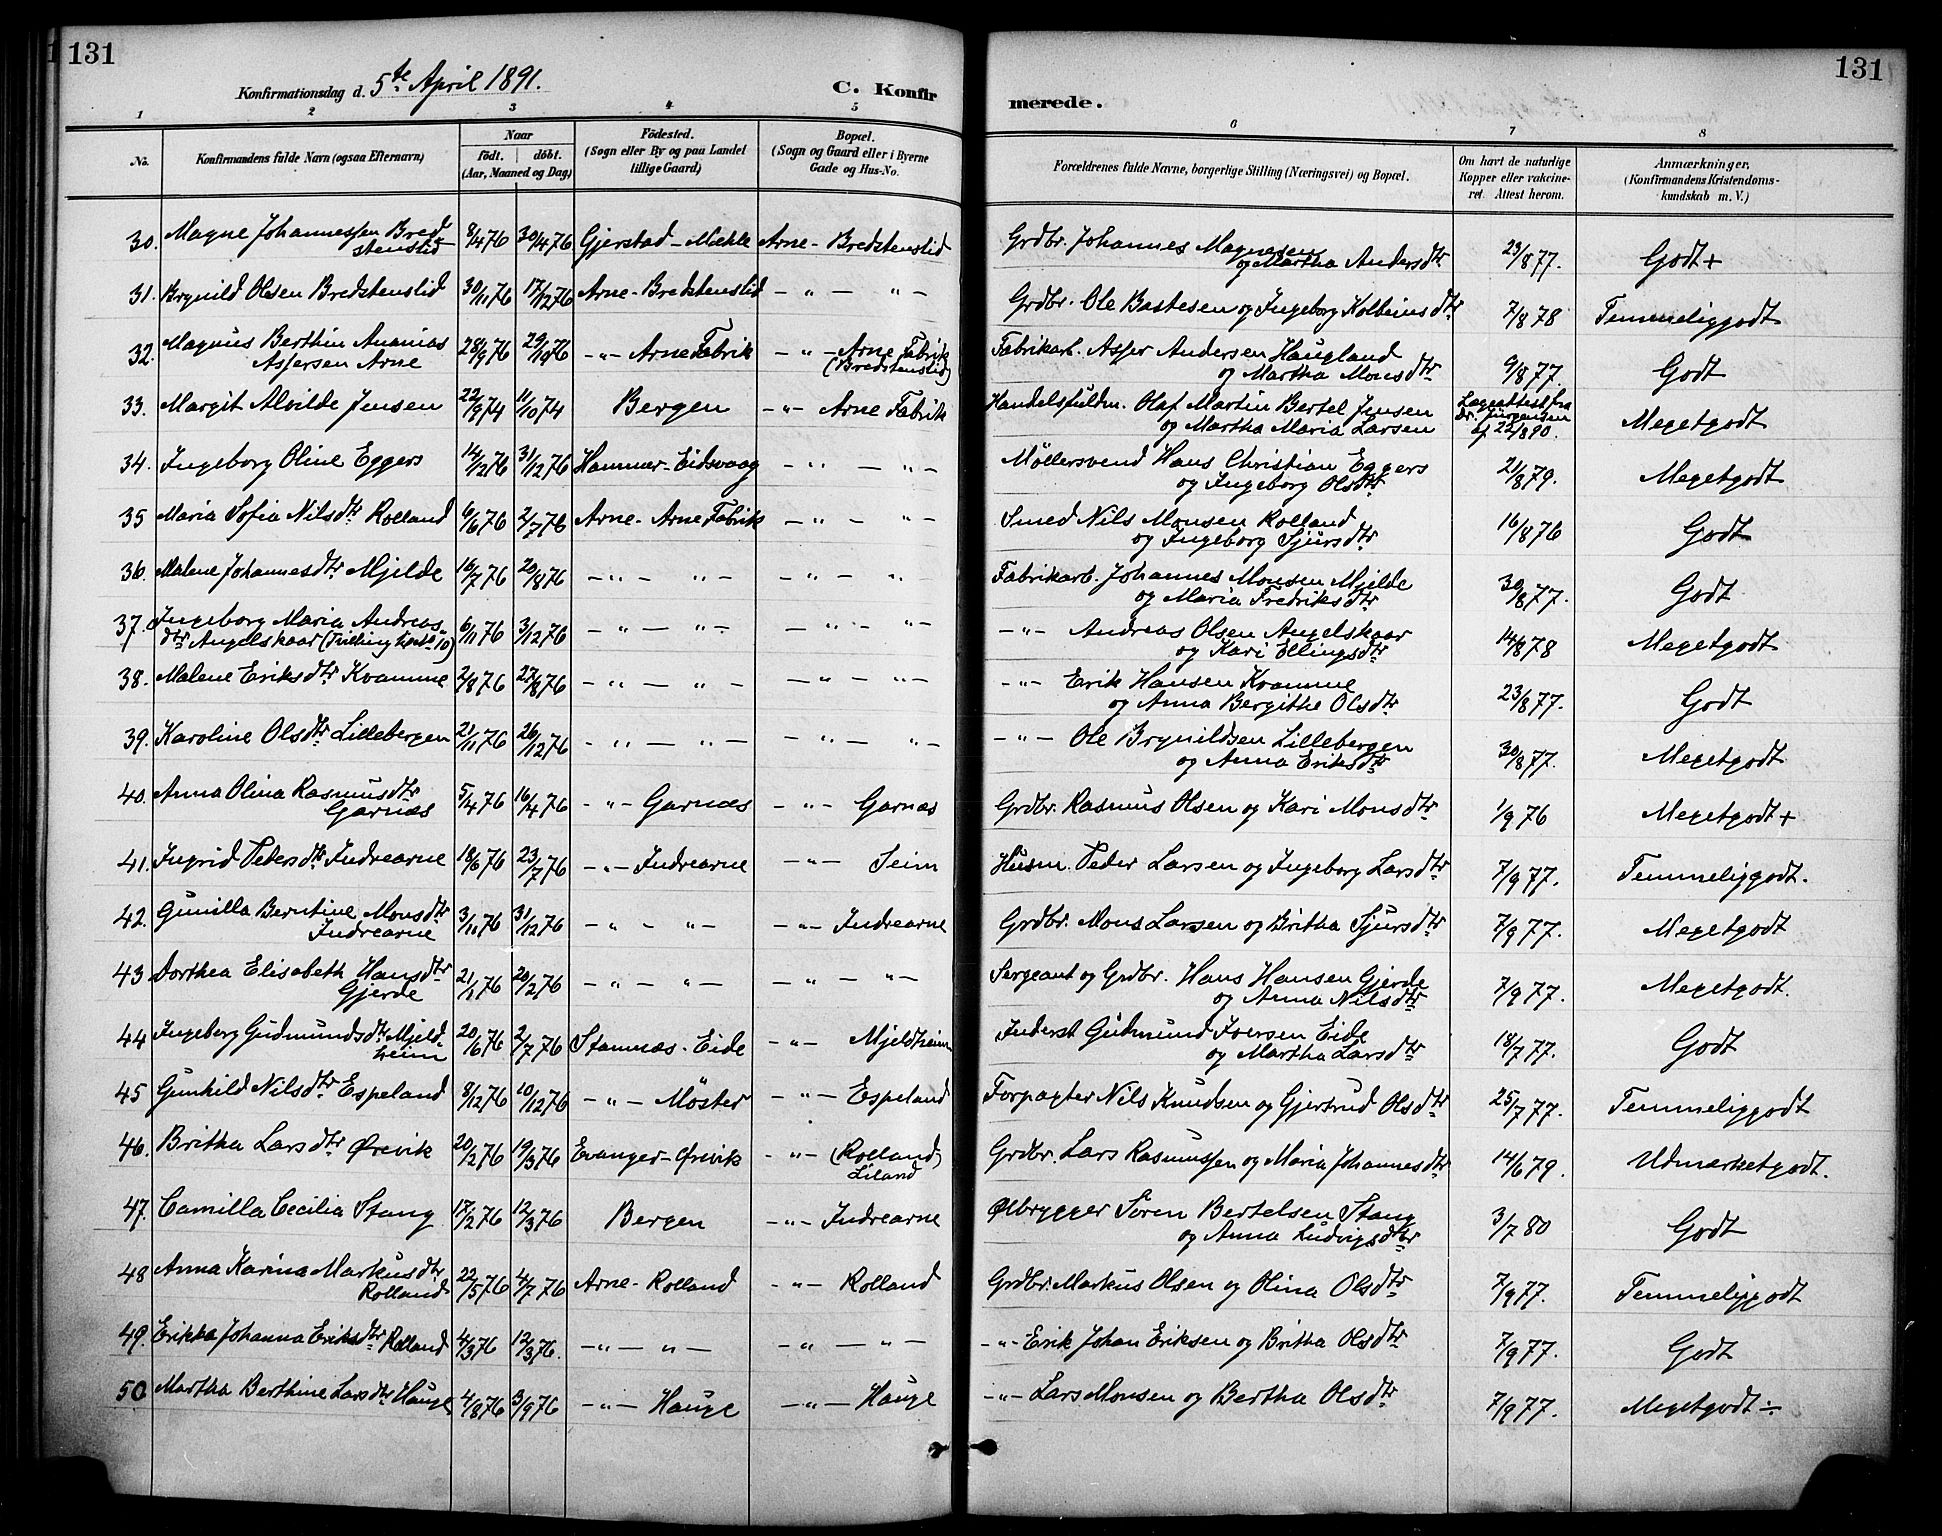 131
131
Konfirmationsdag d. 5te April 1891.
C. Konfir
merede.
1 2 3 4 5 6 7 8
No. Konfirmandens fulde Navn (ogsaa Efternavn) Naar födt. döbt. (Aar, Maaned og Dag) Födested. (Sogn eller By og paa Landet tillige Gaard) Bopæl. (Sogn og Gaard eller i Byerne Gade og Hus-No. Forældrenes fulde Navne, borgerlige Stilling (Næringsvei) og Bopæl. Om havt de naturlige Kopper eller vakcineret. Attest herom. Anmærkninger. (Konfirmandens Kristendomskundskab m. V.)
30. Magne Johannessen Bredstenslid 8/4 76 30/4 76 Gjerstad - Mæhle Arne - Bredstenslid Grdbr. Johannes Magnesen og Martha Andersdtr 23/8 77. Godt+
31. Brynild Olsen Bredstenslid 30/11 76 17/12 76 Arne - Bredstenslid - " - " - Grdbr. Ole Bastesen og Ingeborg Kolbeinsdtr 7/8 78 Temmeliggodt
32. Magnus Berthin Ananias Assersen Arne 28/9 76 29/10 76 - " - Arne Fabrik - " - Arne Fabrik (Bredstenslid) Fabrikarb. Asser Andersen Haugland og Martha Monsdtr 9/8 77. Godt
33. Margit Alvilde Jensen 22/9 74 11/10 74 Bergen - " - Arne Fabrik Handelsfuldm. Olaf Martin Bertel Jensen og Martha Maria Larsen Lægeattest fra Dr. Jürgensen af 22/8 90. Megetgodt
34. Ingeborg Oline Eggers 14/12 76 31/12 76 Hammer - Eidsvaag - " - " - Möllersvend Hans Christian Eggers og Ingeborg Olsdtr 21/8 79. Megetgodt
35 Maria Sofia Nilsdtr Rolland 6/6 76 2/7 76 Arne - Arne Fabrik - " - " - Smed Nils Monsen Rolland og Ingeborg Sjursdtr 16/8 76 Godt
36. Malene Johannesdtr Mjelde 16/7 76 20/8 76 - " - " - - " - " - Fabrikarb. Johannes Monsen Mjelde og Maria Fredriksdtr 30/8 77. Godt
37. Ingeborg Maria Andreasdtr Angelskaar 6/11 76 3/12 76 - " - " - - " - " - - " - Andreas Olsen Angelskaar og Kari Ellingsdtr 14/8 78 Megetgodt
38. Malene Eriksdtr Kvamme 2/8 76 27/8 76 - " - " - - " - " - - " - Erik Hansen Kvamme og Anna Bergithe Olsdtr 23/8 77. Godt
39. Karoline Olsdtr Lillebergen 21/11 76 26/12 76 - " - " - - " - " - - " - Ole Brynildsen Lillebergen og Anna Eriksdtr 30/8 77. Megetgodt
40. Anna Olina Rasmusdtr Garnæs 5/4 76 16/4 76 - " - Garnæs - " - Garnæs Grdbr. Rasmus Olsen og Kari Monsdtr 1/9 76 Megetgodt+
41. Ingrid Pedersdtr Indrearne 18/6 76 23/7 76 - " - Indrearne - " - Seim Husm. Peder Larsen og Ingeborg Larsdtr 7/9 77. Temmeliggodt.
42. Gunilla Berntine Monsdtr Indrearne 3/11 76 31/12 76 - " - " - - " - Indrearne Grdbr. Mons Larsen og Britha Sjursdtr 7/9 77. Megetgodt
43 Dorthea Elisabeth Hansdtr Gjerde 21/1 76 20/2 76 - " - " - - " - " - Sergeant og Grdbr. Hans Hansen Gjerde og Anna Nilsdtr 7/9 77. Megetgodt.
44 Ingeborg Gudmundsdtr Mjeldheim 20/6 76 2/7 76 Stamnæs - Eide - " - Mjeldheim Inderst Gudmund Iversen Eide og Martha Larsdtr 18/7 77. Godt
45 Gunhild Nilsdtr Espeland 8/12 76 10/12 76 - " - Möster - " - Espeland Forpagter Nils Knudsen og Gjertrud Olsdtr 25/7 77. Temmeliggodt
46. Britha Larsdtr Ørevik 20/2 76 19/3 76 Evanger - Ørevik - " - (Rolland) Liland Grdbr. Lars Rasmussen og Maria Johannesdtr 14/6 79. Udmærketgodt.
47. Camilla Cecilia Stang 17/2 76 12/3 76 Bergen - " - Indrearne Ølbrygger Sören Bertelsen Stang og Anna Ludvigsdtr 3/7 80 Godt
48 Anna Karina Markusdtr Rolland 22/5 76 4/7 76 Arne - Rolland - " - Rolland Grdbr. Markus Olsen og Olina Olsdtr 7/9 77. Temmeliggodt
49. Erikka Johanna Eriksdtr Rolland 4/3 76 12/3 76. - " - " - - " - " - - " - Erik Johan Eriksen og Britha Olsdtr 7/9 77. Godt
50 Martha Berthine Larsdtr Hauge 4/8 76 3/9 76 - " - Hauge - " - Hauge - " - Lars Monsen og Bertha Olsdtr 7/9 77. Megetgodt÷